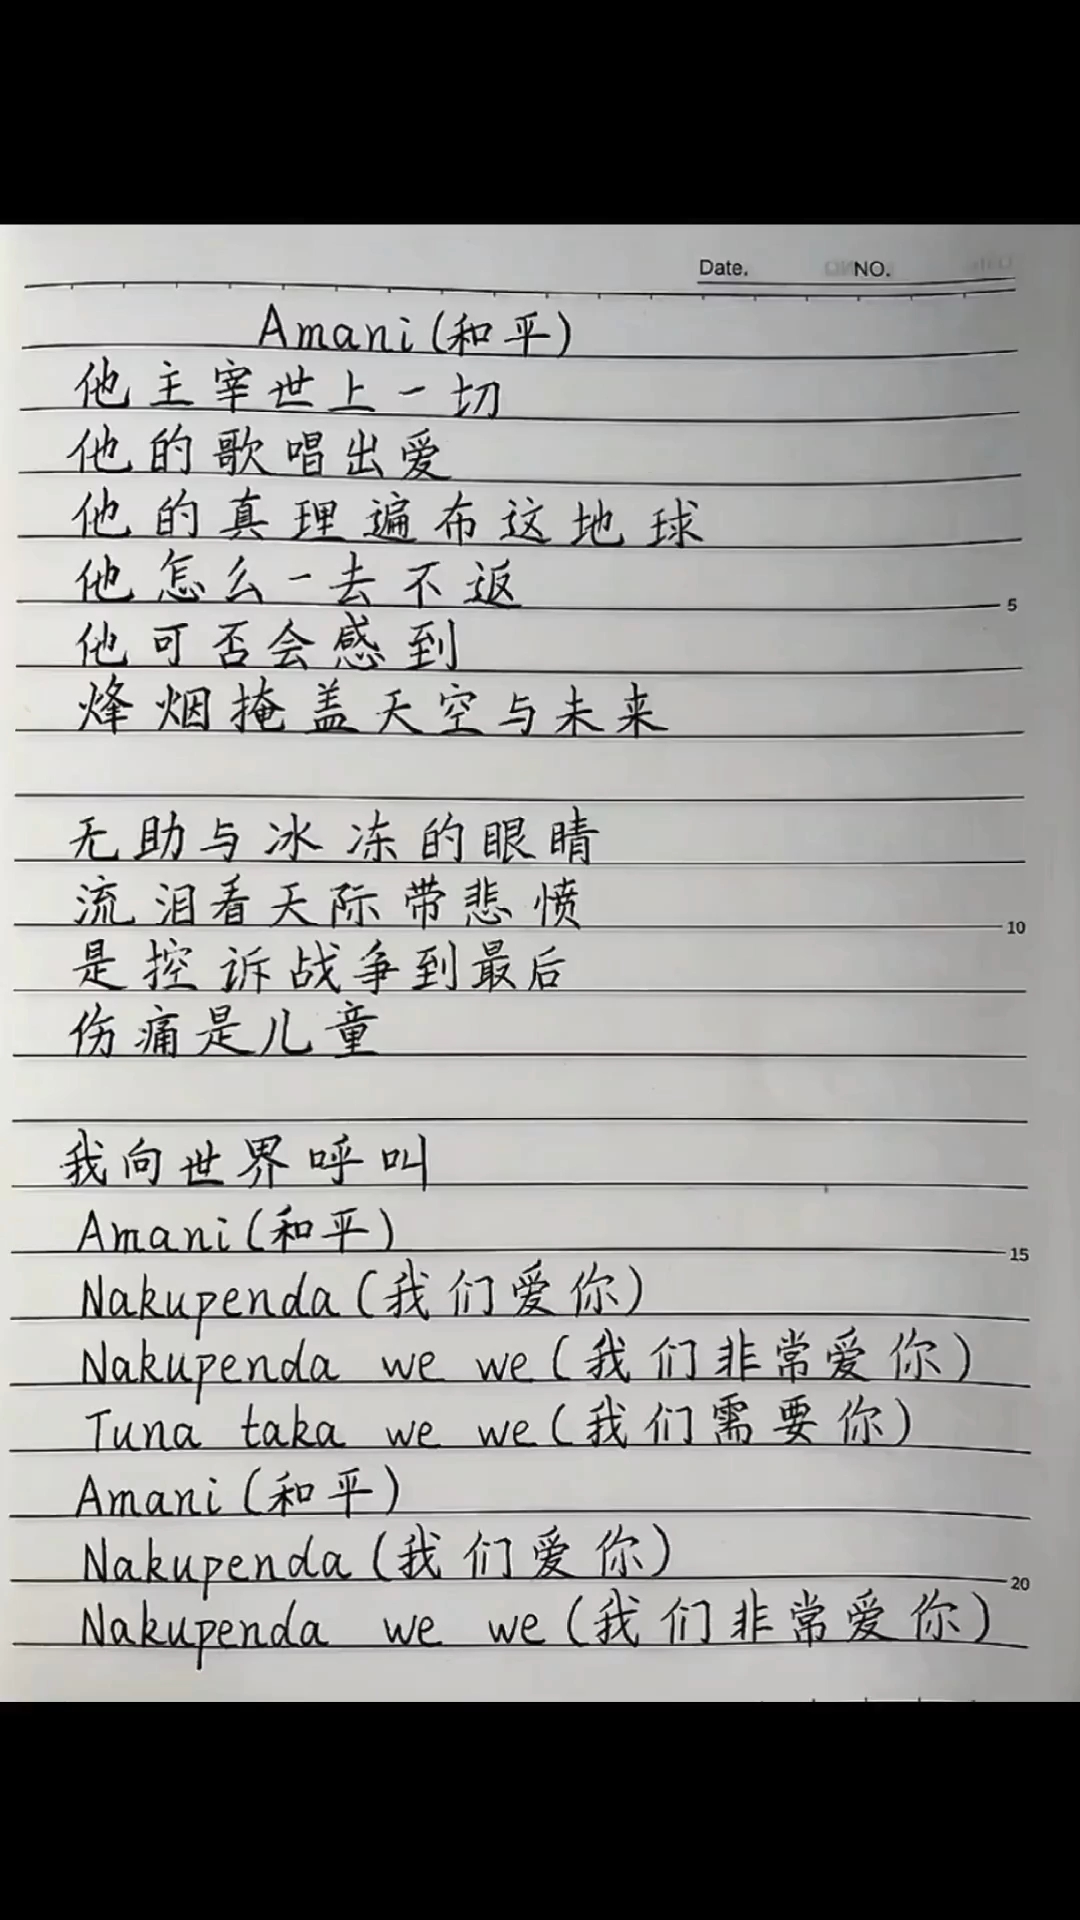 Date. NO.
Amani(和平)
他主宰世上一切
他的歌唱出爱
他的真理遍布这地球
他怎么一去不返
5
他可否会感到
烽烟掩盖天空与未来
无助与冰冻的眼睛
流泪看天际带悲愤
10
是控诉战争到最后
伤痛是儿童
我向世界呼叫
Amani(和平)
15
Nakupenda(我们爱你)
Nakupenda we we(我们非常爱你)
Tuna taka we we(我们需要你)
Amani(和平)
Nakupenda(我们爱你)
20
Nakupenda we we(我们非常爱你)